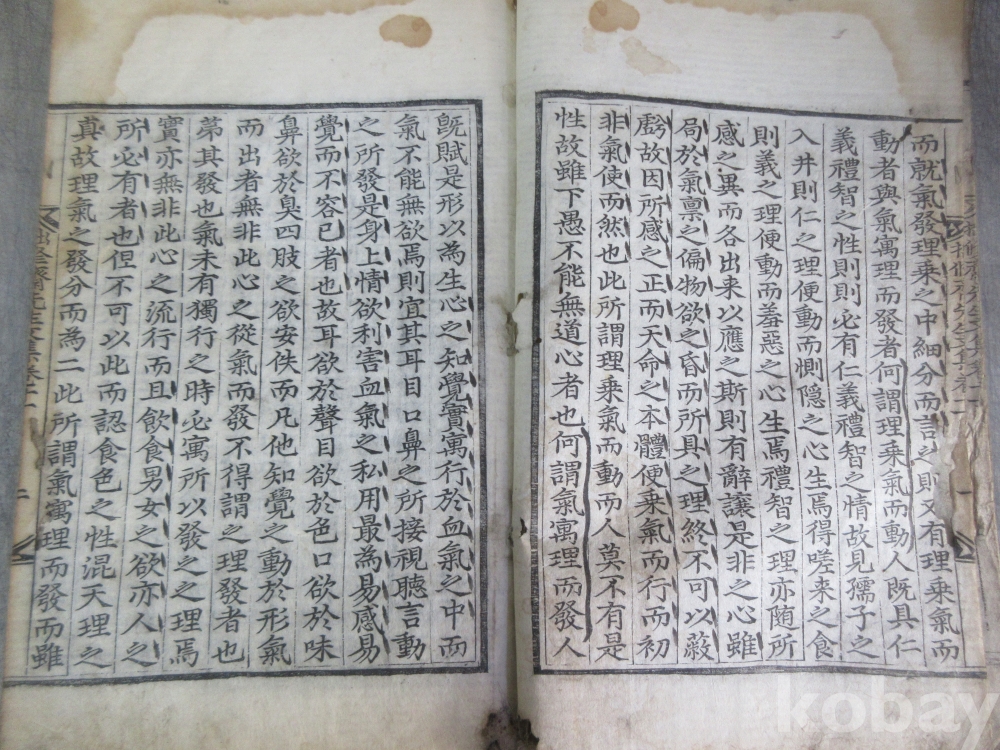 而就氣發理乘之中細分而言之則又有理乘氣而
動者與氣寓理而發者何謂理乘氣而動人既具仁
義禮智之性則必有仁義禮智之情故見孺子之
入井則仁之理便動而惻隐之心生焉得嗟来之食
則義之理便動而羞惡之心生焉禮智之理亦随所
感之異而各出来以應之斯則有辭讓是非之心雖
局於氣禀之偏物欲之昏而所具之理終不可以蔽
虧故因所感之正而天命之本體便乗氣而行而初
非氣使而然也此所謂理乗氣而動而人莫不有是
性故雖下愚不能無道心者也何謂氣寓理而發人
旣賦是形以為生心之知覺實寓行於血氣之中而
氣不能無欲焉則宜其耳目口鼻之所接視聽言動
之所發是身上情欲利害血氣之私用最為易感易
覺而不容已者也故耳欲於聲目欲於色口欲於味
鼻欲於臭四肢之欲安佚而凡他知覺之動於形氣
而出者無非此心之從氣而發不得謂之理發者也
苐其發也氣未有獨行之時必寓所以發之之理焉
實亦無非此心之流行而且飲食男女之欲亦人之
所必有者也但不可以此而認食色之性混天理之
真故理氣之發分而為二此所謂氣寓理而發而雖
kobay